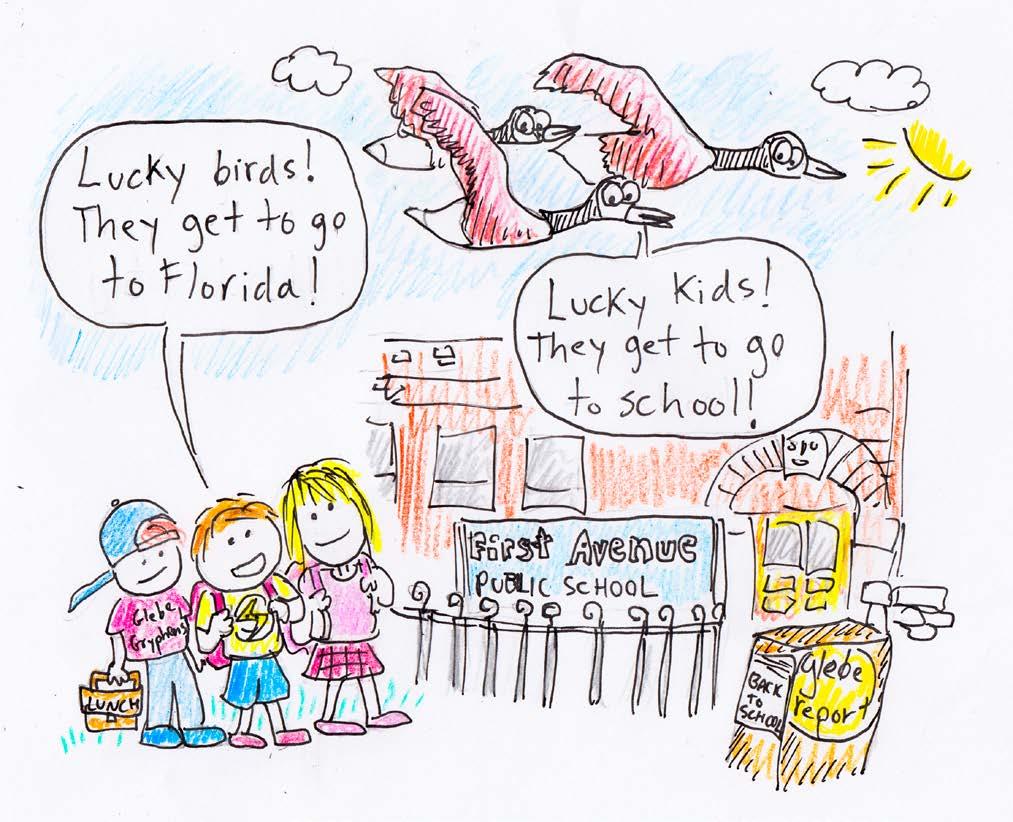 Lucky birds!
They get to go
to Florida!
Lucky Kids!
They get to go
to school!
First Avenue
PUBLIC SCHOOL
Glebe
Gryphons
LUNCH
BACK
TO
SCHOOL
glebe
report